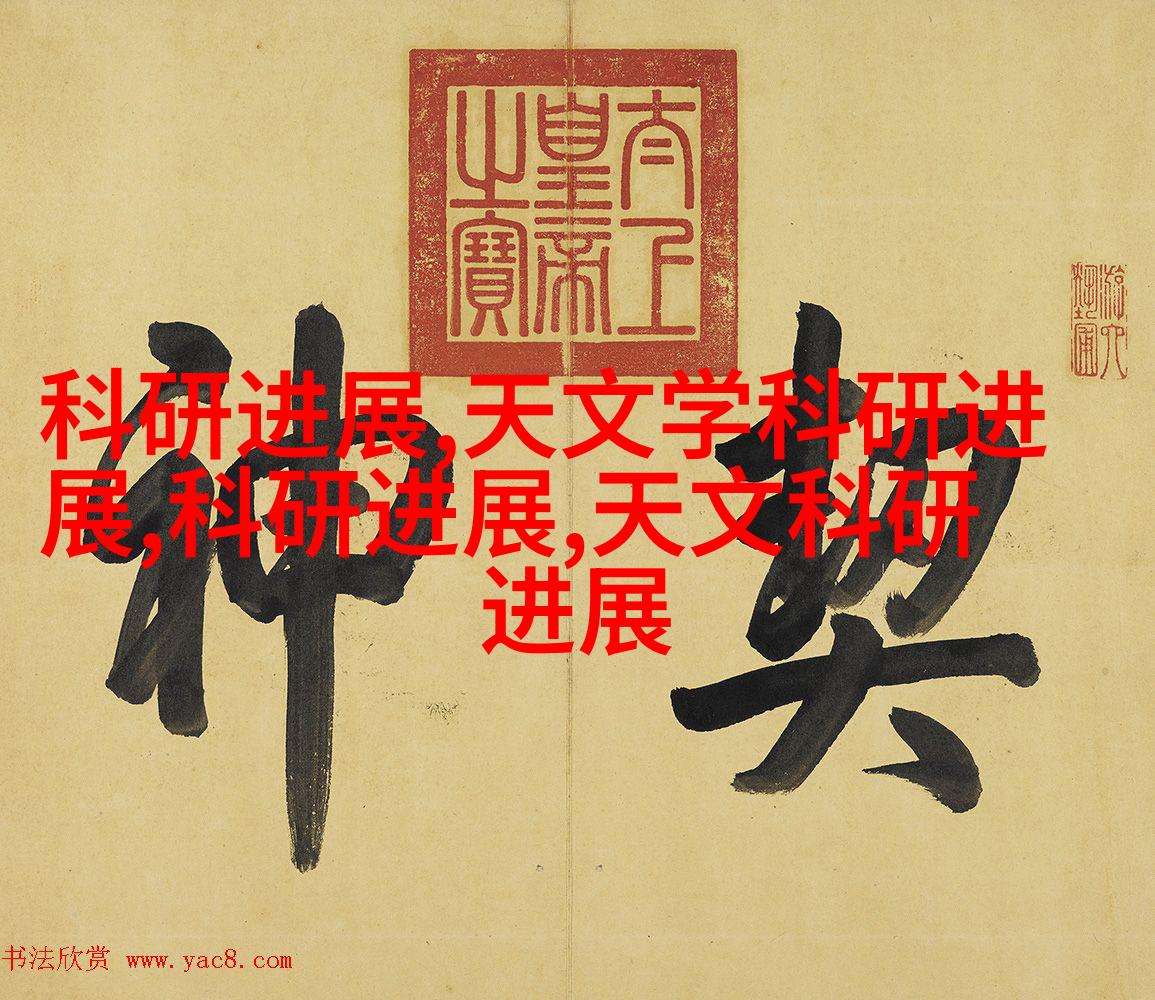 太上
皇帝
之寶
游六
藝圃
契
神
科研进展,天文学科研进
展,科研进展,天文科研
进展
书法欣赏 www.yac8.com